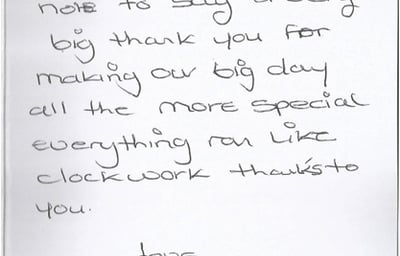 note to say a very
big thank you for
making our big day
all the more special
everything ran like
clockwork thanks to
you.
love